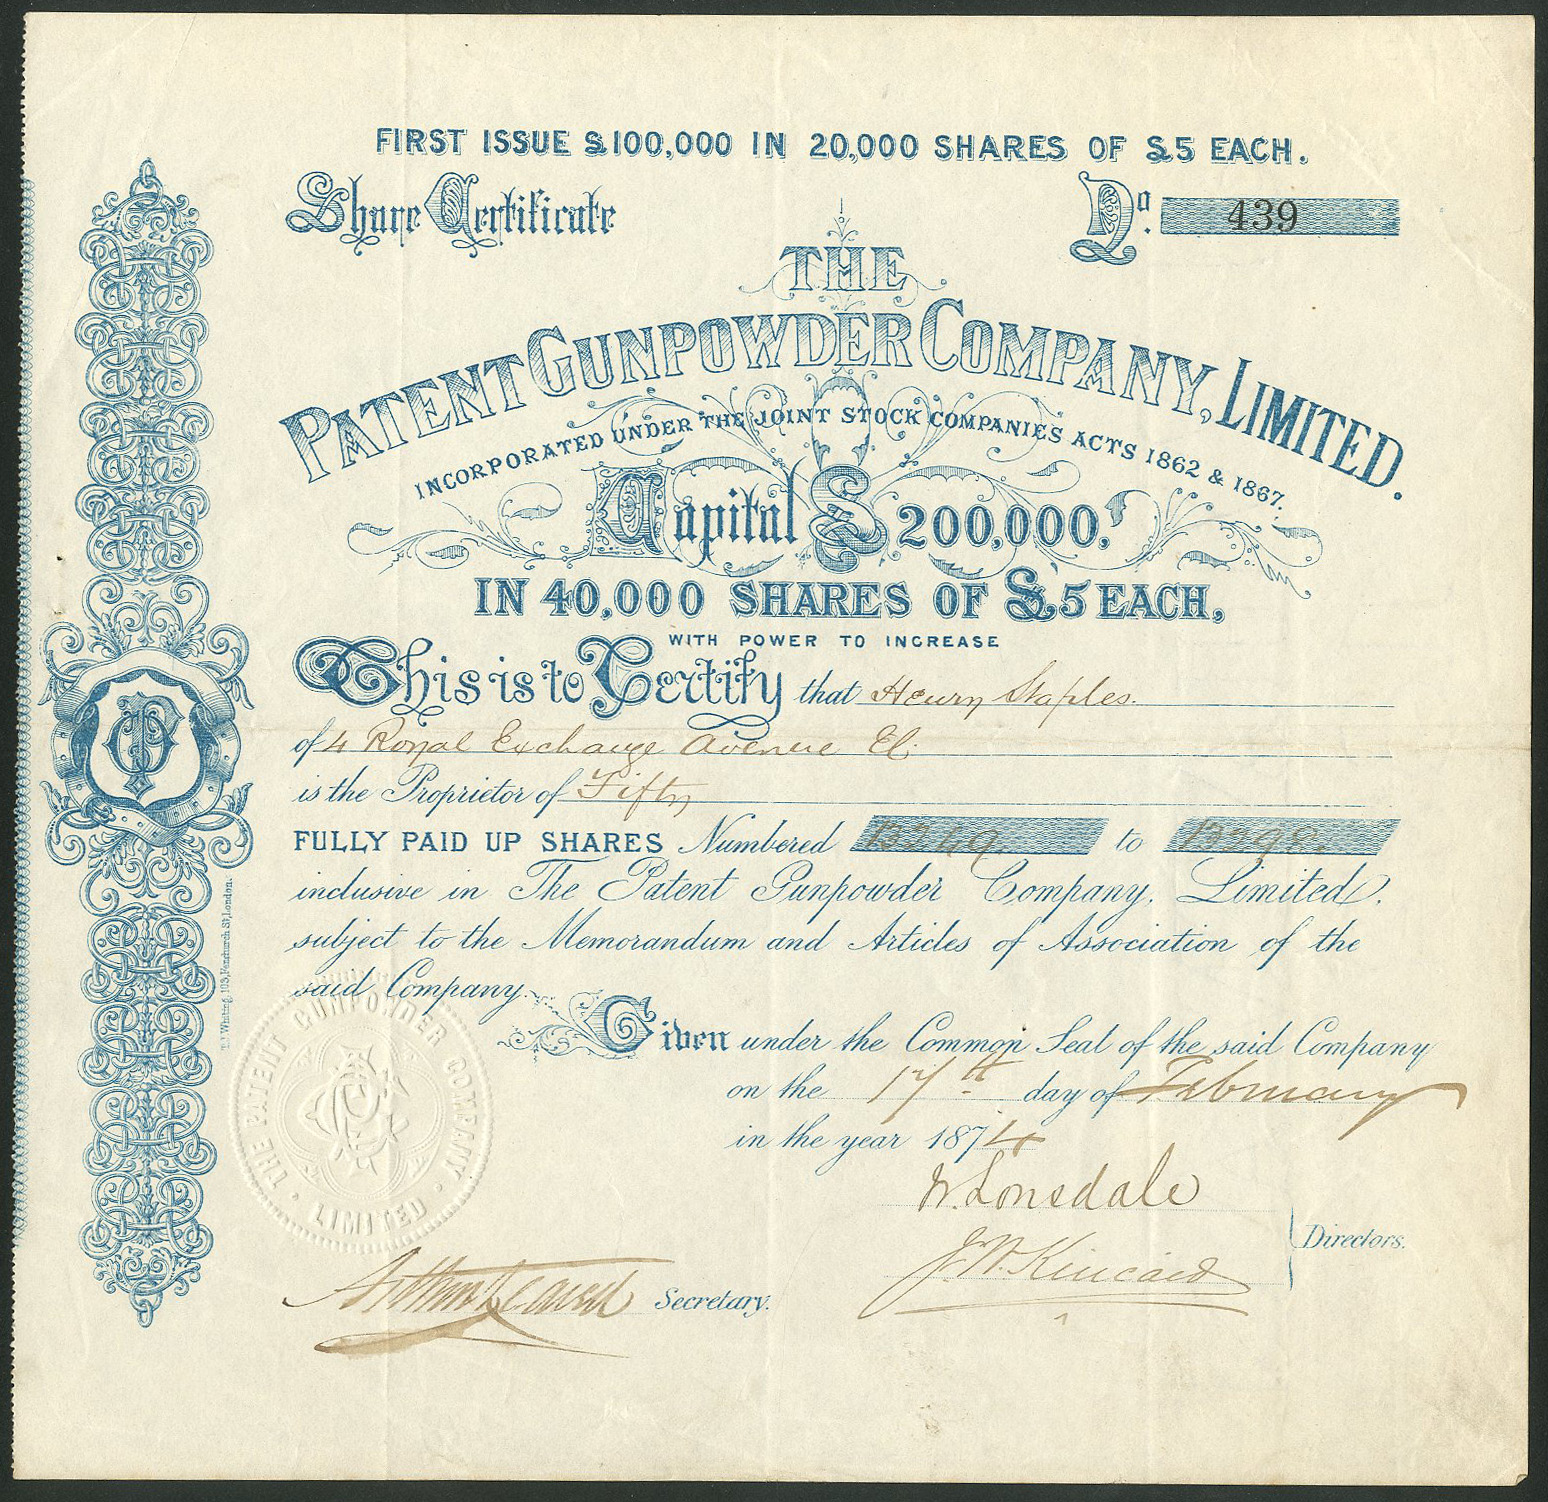 FIRST ISSUE £100,000 IN 20,000 SHARES OF £5 EACH.
Share Certificate
No. 439
THE
PATENT GUNPOWDER COMPANY, LIMITED.
INCORPORATED UNDER THE JOINT STOCK COMPANIES ACTS 1862 & 1867.
Capital £200,000,
IN 40,000 SHARES OF £5 EACH,
WITH POWER TO INCREASE
This is to Certify that Henry Staples.
of 4 Royal Exchange Avenue EC.
is the Proprietor of Fifty
FULLY PAID UP SHARES Numbered 13249 to 13298
inclusive in The Patent Gunpowder Company, Limited.
subject to the Memorandum and Articles of Association of the
said Company.
Given under the Common Seal of the said Company
on the 17th day of February
in the year 1874
W. Lonsdale
J. W. Kincaid
Directors.
Secretary.
THE PATENT GUNPOWDER COMPANY LIMITED
Whiting, 103, Fenchurch St, London.